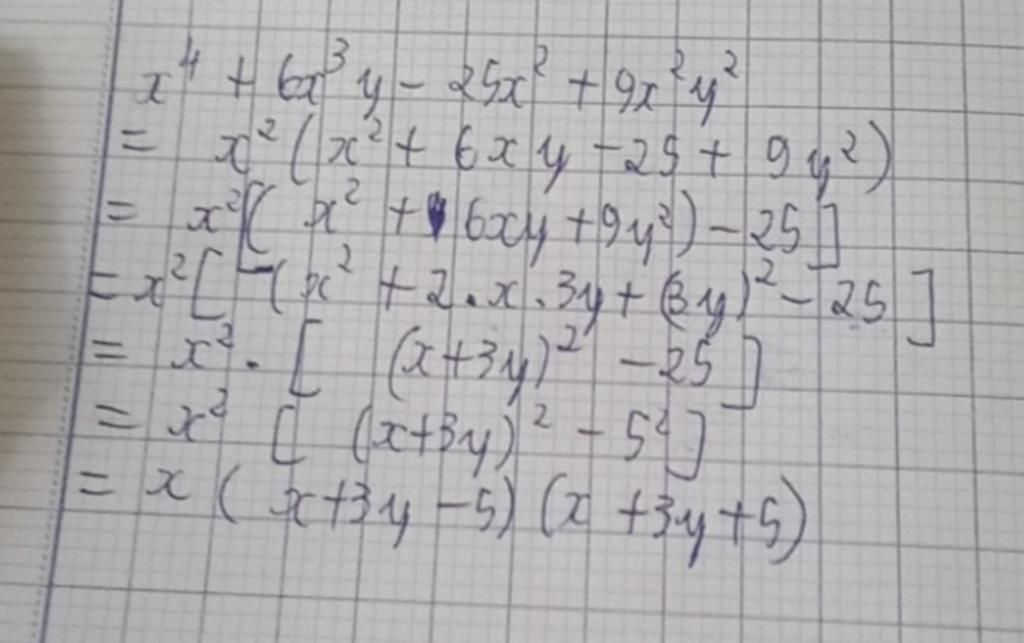 x⁴ + 6x³y - 25x² + 9x²y²
= x²(x² + 6xy - 25 + 9y²)
= x²[(x² + 6xy + 9y²) - 25]
= x²[(x² + 2.x.3y + (3y)² - 25]
= x².[(x+3y)² - 25]
= x²[(x+3y)² - 5²]
= x(x+3y-5)(x+3y+5)